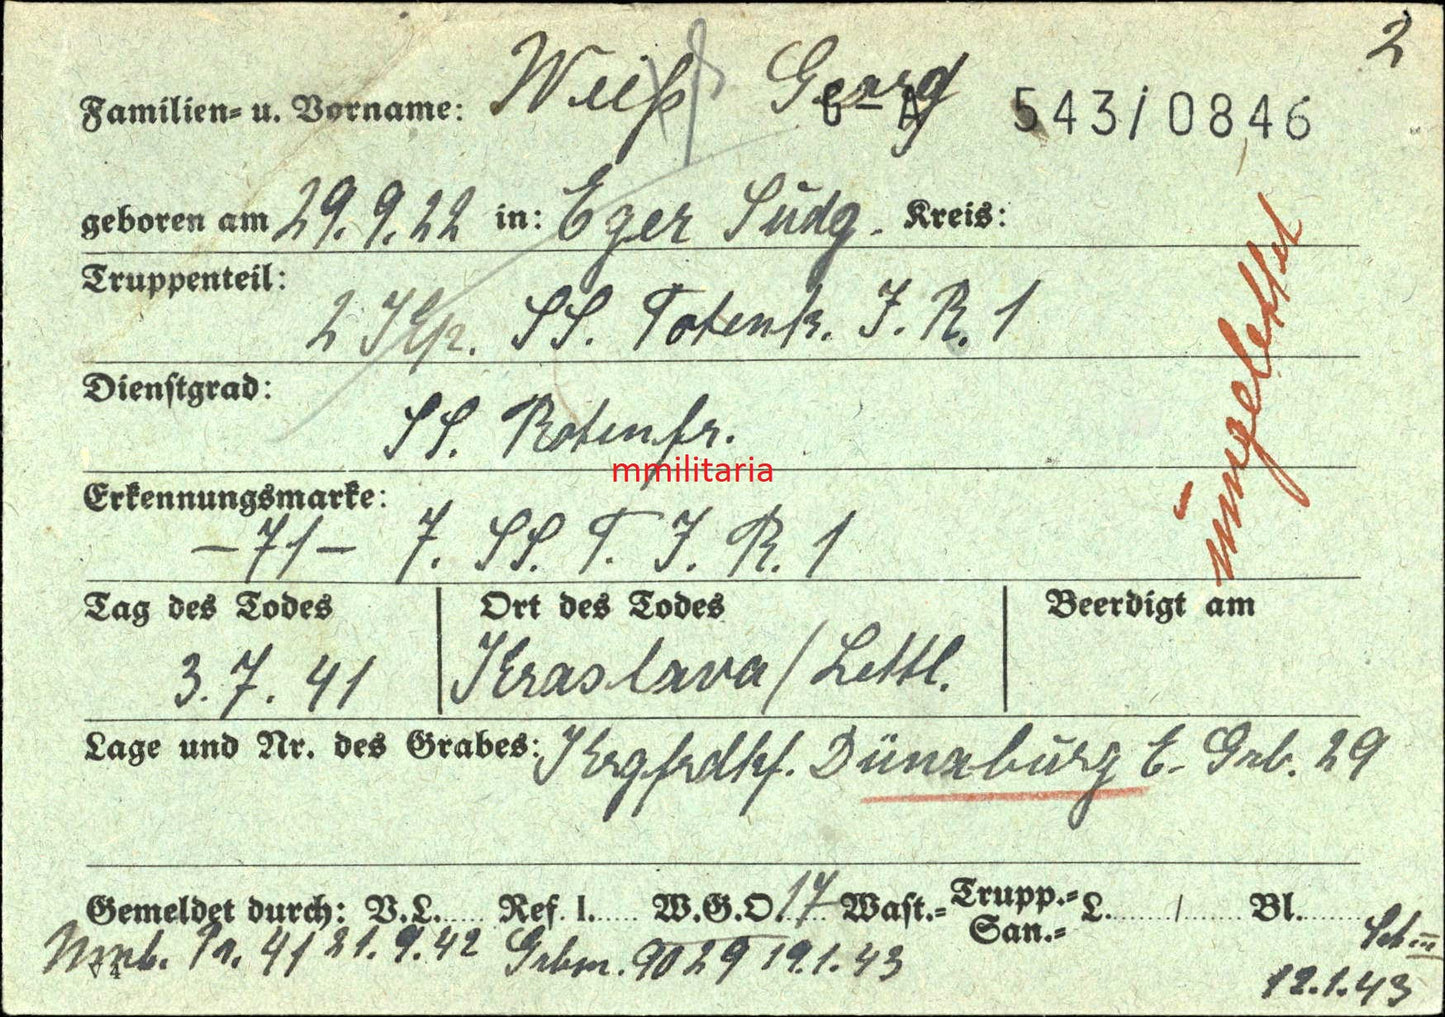 2
Familien= u. Vorname: Weiß Georg G- A 543/0846
geboren am 29.9.22 in: Eger Südg. Kreis:
Truppenteil:
2 Kp. SS. Totenk. J. R. 1
Dienstgrad:
SS. Rotenfr.
mmilitaria
Erkennungsmarke:
-71- 7. SS. T. J. R. 1
Tag des Todes Ort des Todes Beerdigt am
3.7.41 Kraslava/Lettl.
Lage und Nr. des Grabes: Krgfrdhf. Dünaburg E- Grb. 29
Gemeldet durch: V.L...... Ref. I...... W.G.O 17 Wast.= Trupp.= San.= L......../...... Bl.........
41 21.9.42 Grbm. 9029 19.1.43
12.1.43
umgebettet